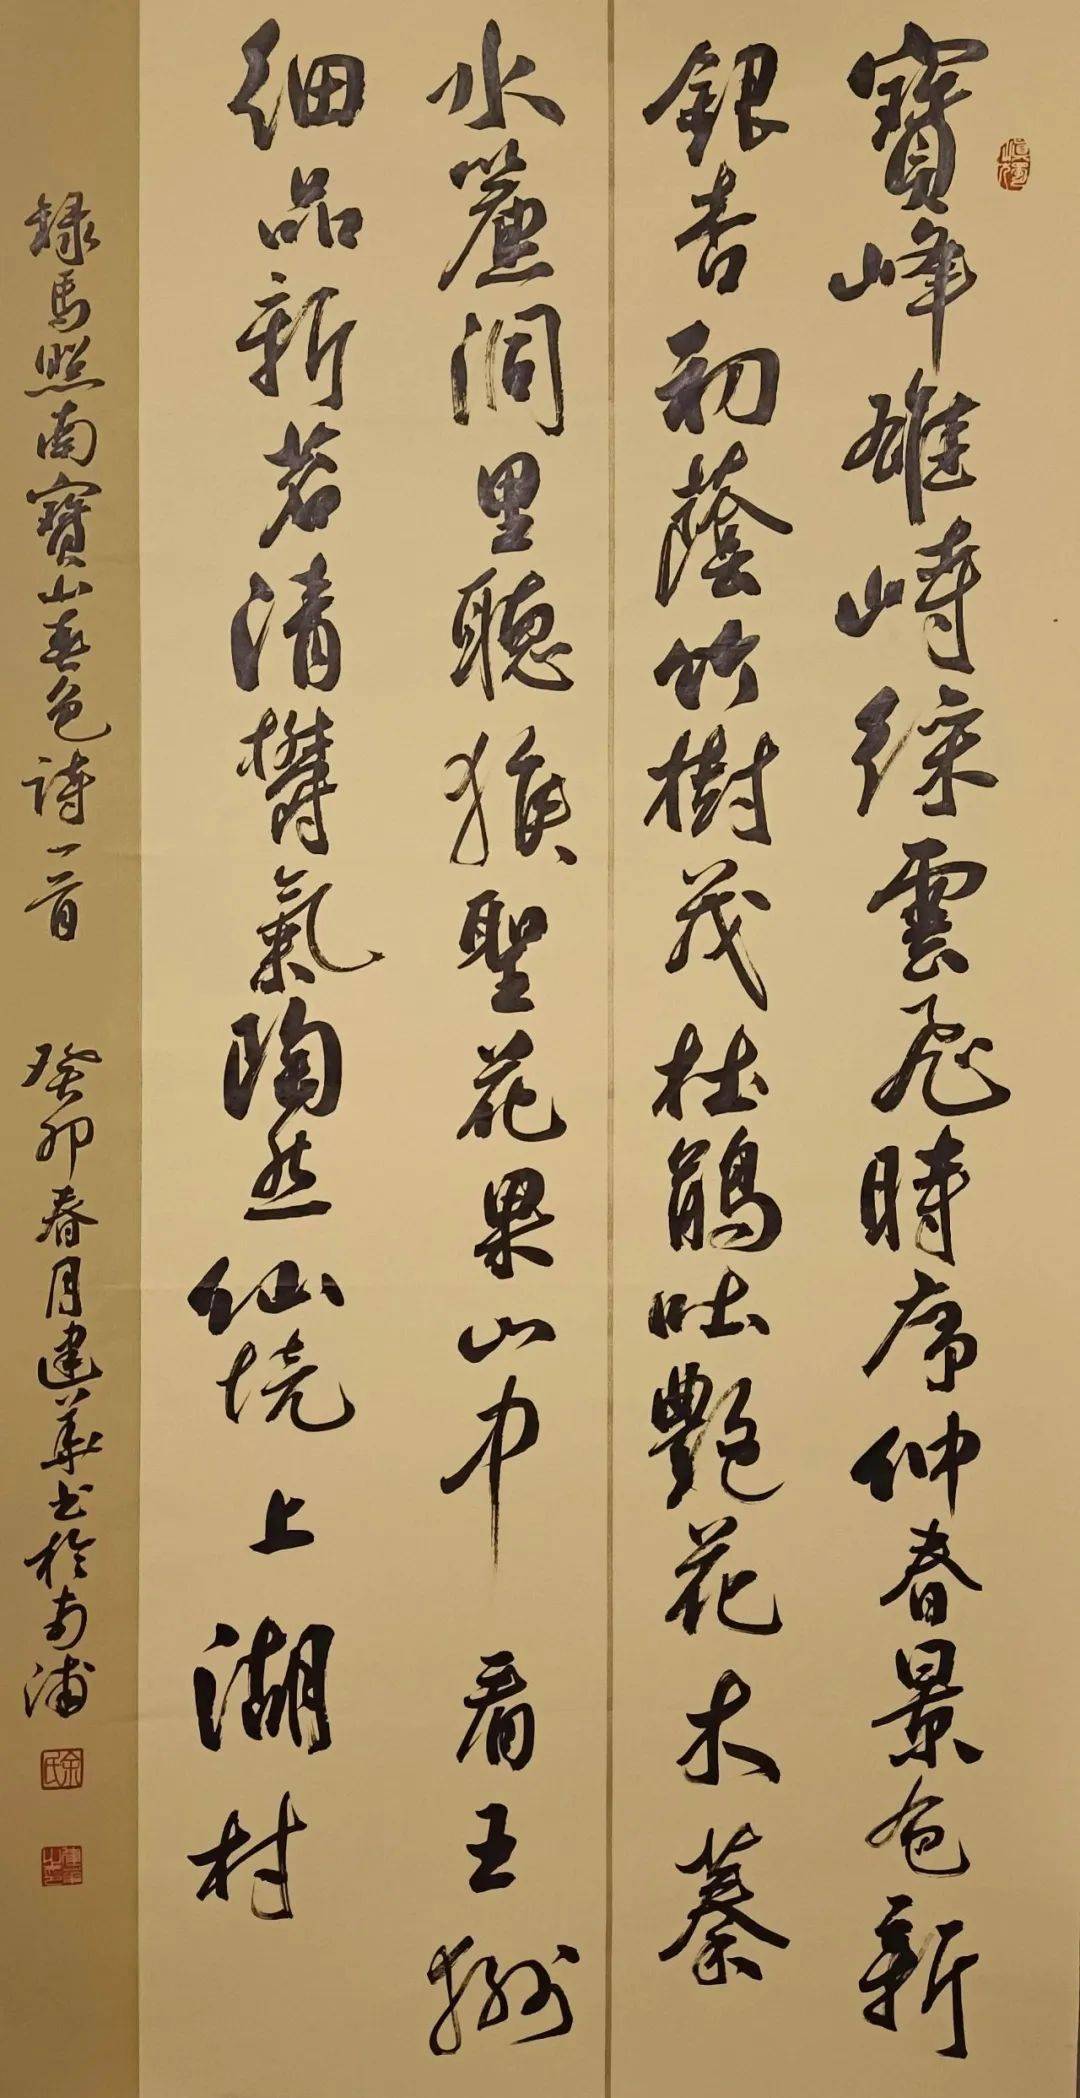 寶峰雄峙綵雲飛時序仲春景色新
銀杏初蔭竹樹茂杜鵑吐艷花木蓁
水簾洞里聽猴聖花果山中看王猻
細品新茗清欎氣陶然仙境上湖村
錄馬照南寶山春色詩一首 癸卯春月建華书於南浦
余氏